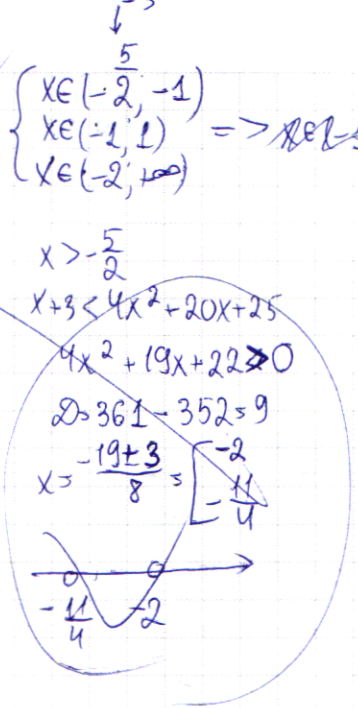 x∈(-5/2; -1)
x∈(-1; 1) =>
x∈(-2; +∞)
x>-5/2
x+3<4x²+20x+25
4x²+19x+22>0
D=361-352=9
x=(-19±3)/8=[-2
-11/4
-11/4 -2